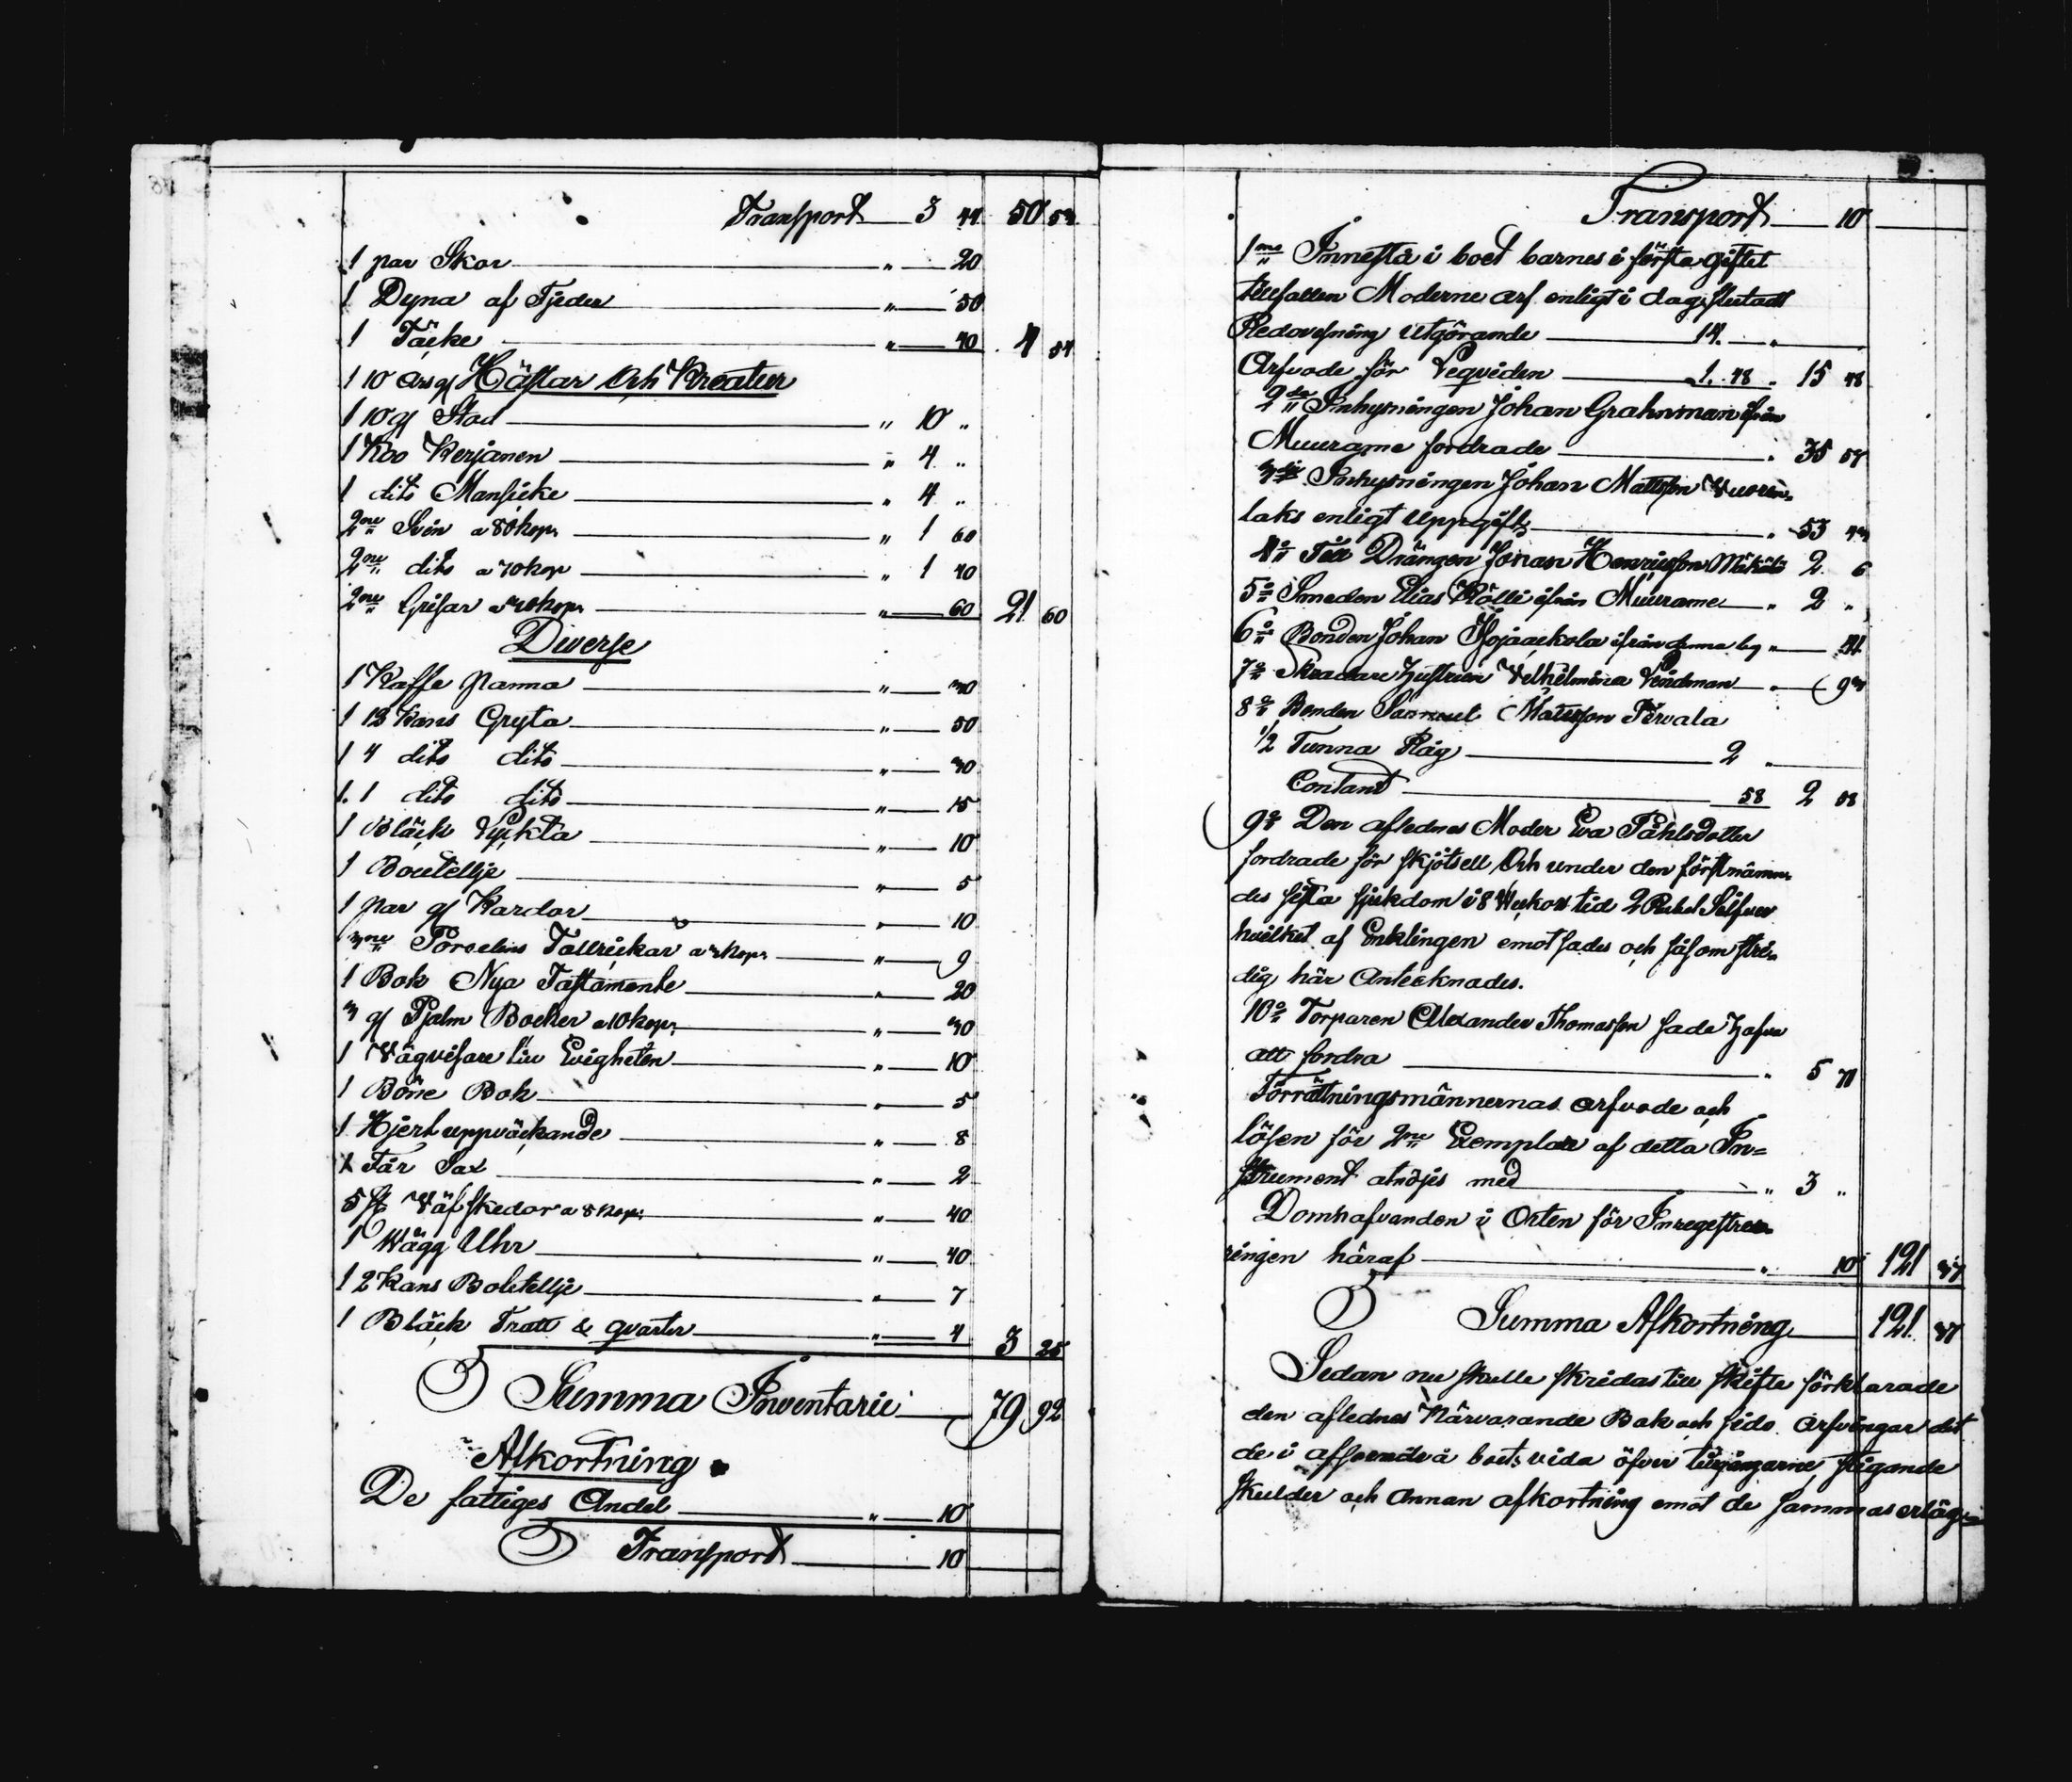 Transport 3 44 50 53
1 par Skor " 20
1 Dyna af Fjeder " 50
1 Täcke " 40 4 54
1 10 års gl Hästar Och Kreatur
1 10 gl Stod " 10 "
1 Koo Kerjanen " 4 "
1 dito Mansicke " 4 "
2ne Svin a 80 kop: " 1 60
2ne dito a 70 kop " 1 40
2ne Grisar a 30 kop: " 60 21 60
Diverse
1 Kaffe Panna " 30
1 13 Kans Gryta " 50
1 4 dito dito " 30
1. 1 dito dito " 15
1 Bläck Lyckta " 10
1 Boutellje " 5
1 par gl Kardor " 10
3ne Porselins Tallrickar a 3 kop: " 9
1 Bok Nya Tastamente " 20
3 gl Psalm Bocker a 10 kop: " 30
1 Vägvisare till Evigheten " 10
1 Böne Bok " 5
1 Hjert uppväckande " 8
1 Får Sax " 2
5 st Väfskedar a 8 kop: " 40
1 Wägg Uhr " 40
1 2 Kans Boutellje " 7
1 Bläck Tratt & qvarter " 4 3 25
Summa Inventarii 79 92
Afkortning
De fattiges Andel " 10
Transport 10
Transport 10
1mo Innestå i boet barnes i första giftet
tillfallen Moderne arf enligt i dag slutadt
Redovisning utgörande 14. "
Arfvode för Leqviden 1. 48 " 15 48
2do Inhysningen Johan Grahnman ifrån
Muurame fordrade " 35 57
3tio Inhysningen Johan Mattsson Vuoren-
laks enligt uppgift " 53 43
4o Till Drängen Johan Henricsson Mikkola 2. 6
5o Smeden Elias Kölli ifrån Muurame " 2 "
6o Bonden Johan Isojaakola ifrån denna by "
7o Skradare hustrun Velhelmina Lindman " 93
8o Bonden Samuel Mattsson Pirvala
1/2 Tunna Råg 2 "
Contant 58 2 58
9o Den aflednes Moder Eva Påhlsdotter
fordrade för skjötsell Och under den förstnämn-
des sista sjukdom i 8 Veckors tid 2 Rubel Silfver
hvilket af Enklingen emotsades och såsom stri-
dig här Antecknades.
10o Torparen Alexander Thomasson sade hafva
att fordra " 5 71
Förrättningsmännernas arfvode och
lösen för 2ne Exemplar af detta In-
strument atnöjes med " 3 "
Domhafvanden i Orten för Inregistre-
ringen häraf " 10 121 37
Summa Afkortning 121. 37
Sedan nu skulle skridas till skifte förklarade
den aflednes Närvarande Bak och sido arfvingar det
de i afseende å boets vida öfver tillgångarne stigande
skulder och annan afkortning emot de sammas erläg-